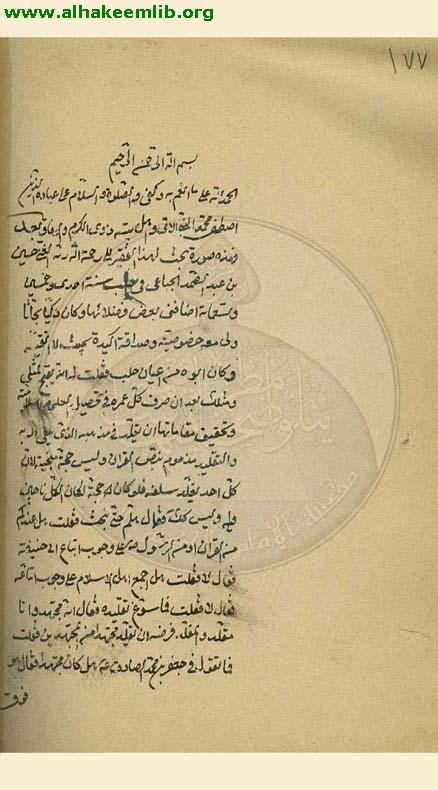 www.alhakeemlib.org
١٧٧
بسم الله الرحمن الرحيم
الحمد لله على ما انعم به وكفى والصلوة والسلام على عباده الذين
اصطفى محمد الاتقى واهل بيته ذوى الكرم والوفا وبعد
فهذه صورة بحث لهذا الفقير الى رحمة الله ربه الغنى حسين
بن عبد الصمد الجباعى فى حلب سنة احدى وخمسين
وتسعمائة اضافنى بعض فضلائها وكان ذكيا بحاثا
ولى معه خصوصية وصداقة اكيدة بحيث لا تقية
وكان ابوه من اعيان حلب فقلت له انه يقبح بمثلى
ومثلك بعد ان صرف كل عمره فى تحصيل العلوم
وتحقيق مقاماتها ان يقلد فى مذهبه الذى يلقى الله به
والتقليد مذموم بنص القران وليس حجة منجية لان
كل احد يقلد سلفه فلو كان حجة لكان الكل ناجين
وليس كك فقال هلم حتى نبحث فقلت هل عندكم
من القران او من الرسول ص على وجوب اتباع ابى حنيفة
فقال لا فقلت هل اجمع اهل الاسلام على وجوب اتباعه
فقال لا فقلت فما سوغ تقليده فقال انه مجتهد وانا
مقلد والمقلد فرضه ان يقلد مجتهدا من المجتهدين فقلت
فما تقول فى جعفر بن محمد الصادق ع هل كان مجتهدا فقال هو
فوق